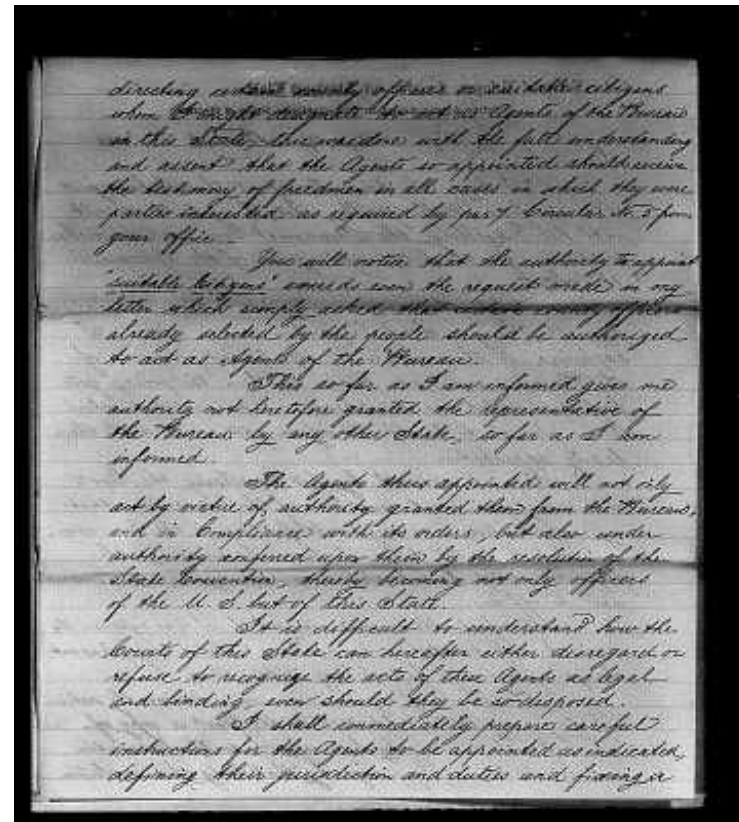 directing certain county officers or suitable citizens
whom I might designate to act as Agents of the Bureau
in this State, this was done with the full understanding
and assent that the Agents so appointed should receive
the testimony of freedmen in all cases in which they were
parties interested as required by par 7 Circular No. 5 from
your office.
You will notice that the authority to appoint
"suitable Citizens" exceeds even the request made in my
letter which simply asked that certain county officers
already selected by the people should be authorized
to act as Agents of the Bureau.
This so far as I am informed gives me
authority not heretofore granted the representative of
the Bureau by any other State, so far as I am
informed.
The Agents thus appointed will not only
act by virtue of, authority granted them from the Bureau,
and in Compliance with its orders, but also under
authority conferred upon them by the resolution of the
State Convention, thereby becoming not only officers
of the U. S. but of this State.
It is difficult to understand how the
Courts of this State can hereafter either disregard or
refuse to recognize the acts of these Agents as legal
and binding, even should they be so disposed.
I shall immediately prepare careful
instructions for the Agents to be appointed as indicated,
defining their jurisdiction and duties and fixing a